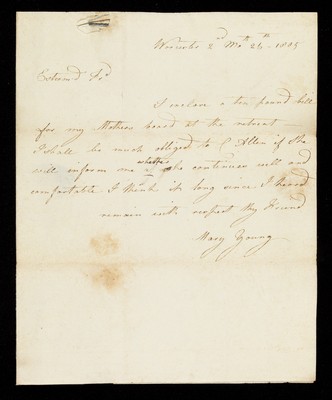 2nd Mo 26th 1805
Esteem'd Frd
I enclose a ten pound bill
for my Mothers board at the retreat
I shall be much obliged to C Allen if she
will inform me whether she continues well and
comfortable I think it long since I heard
remain with respect thy Friend
Mary Young